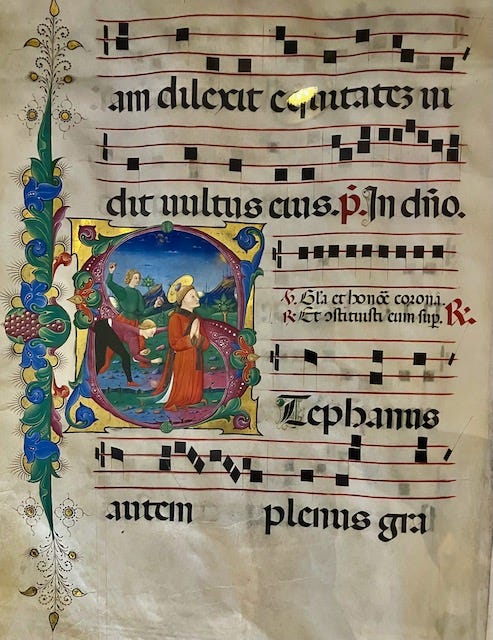 am dilexit equitatez ui
dit uultus eius. p̄. In dn̄o.
V. Gl̄a et honor̄e corona.
R. Et ↄstituisti eum sup̄. R.
Stephanus
autem plenus gra